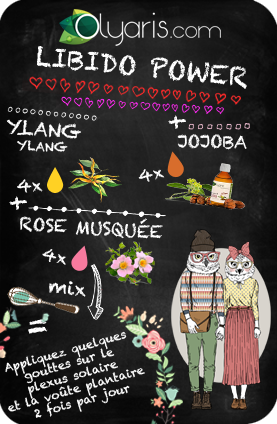 Olyaris.com
LIBIDO POWER
YLANG
YLANG
+
JOJOBA
4x
4x
+
ROSE MUSQUÉE
4x
mix
=
Appliquez quelques
gouttes sur le
plexus solaire
et la voûte plantaire
2 fois par jour